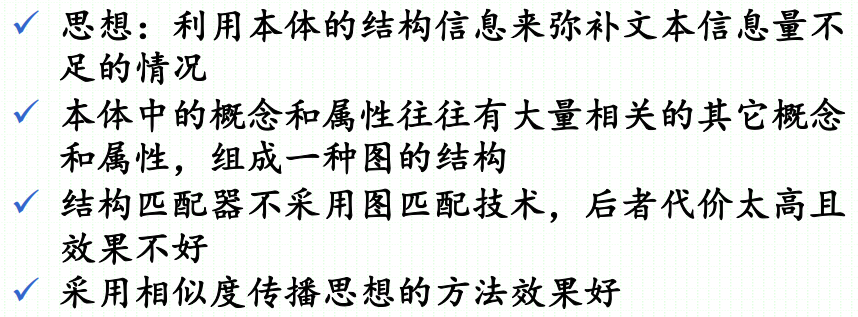 ✓ 思想：利用本体的结构信息来弥补文本信息量不
足的情况
✓ 本体中的概念和属性往往有大量相关的其它概念
和属性，组成一种图的结构
✓ 结构匹配器不采用图匹配技术，后者代价太高且
效果不好
✓ 采用相似度传播思想的方法效果好